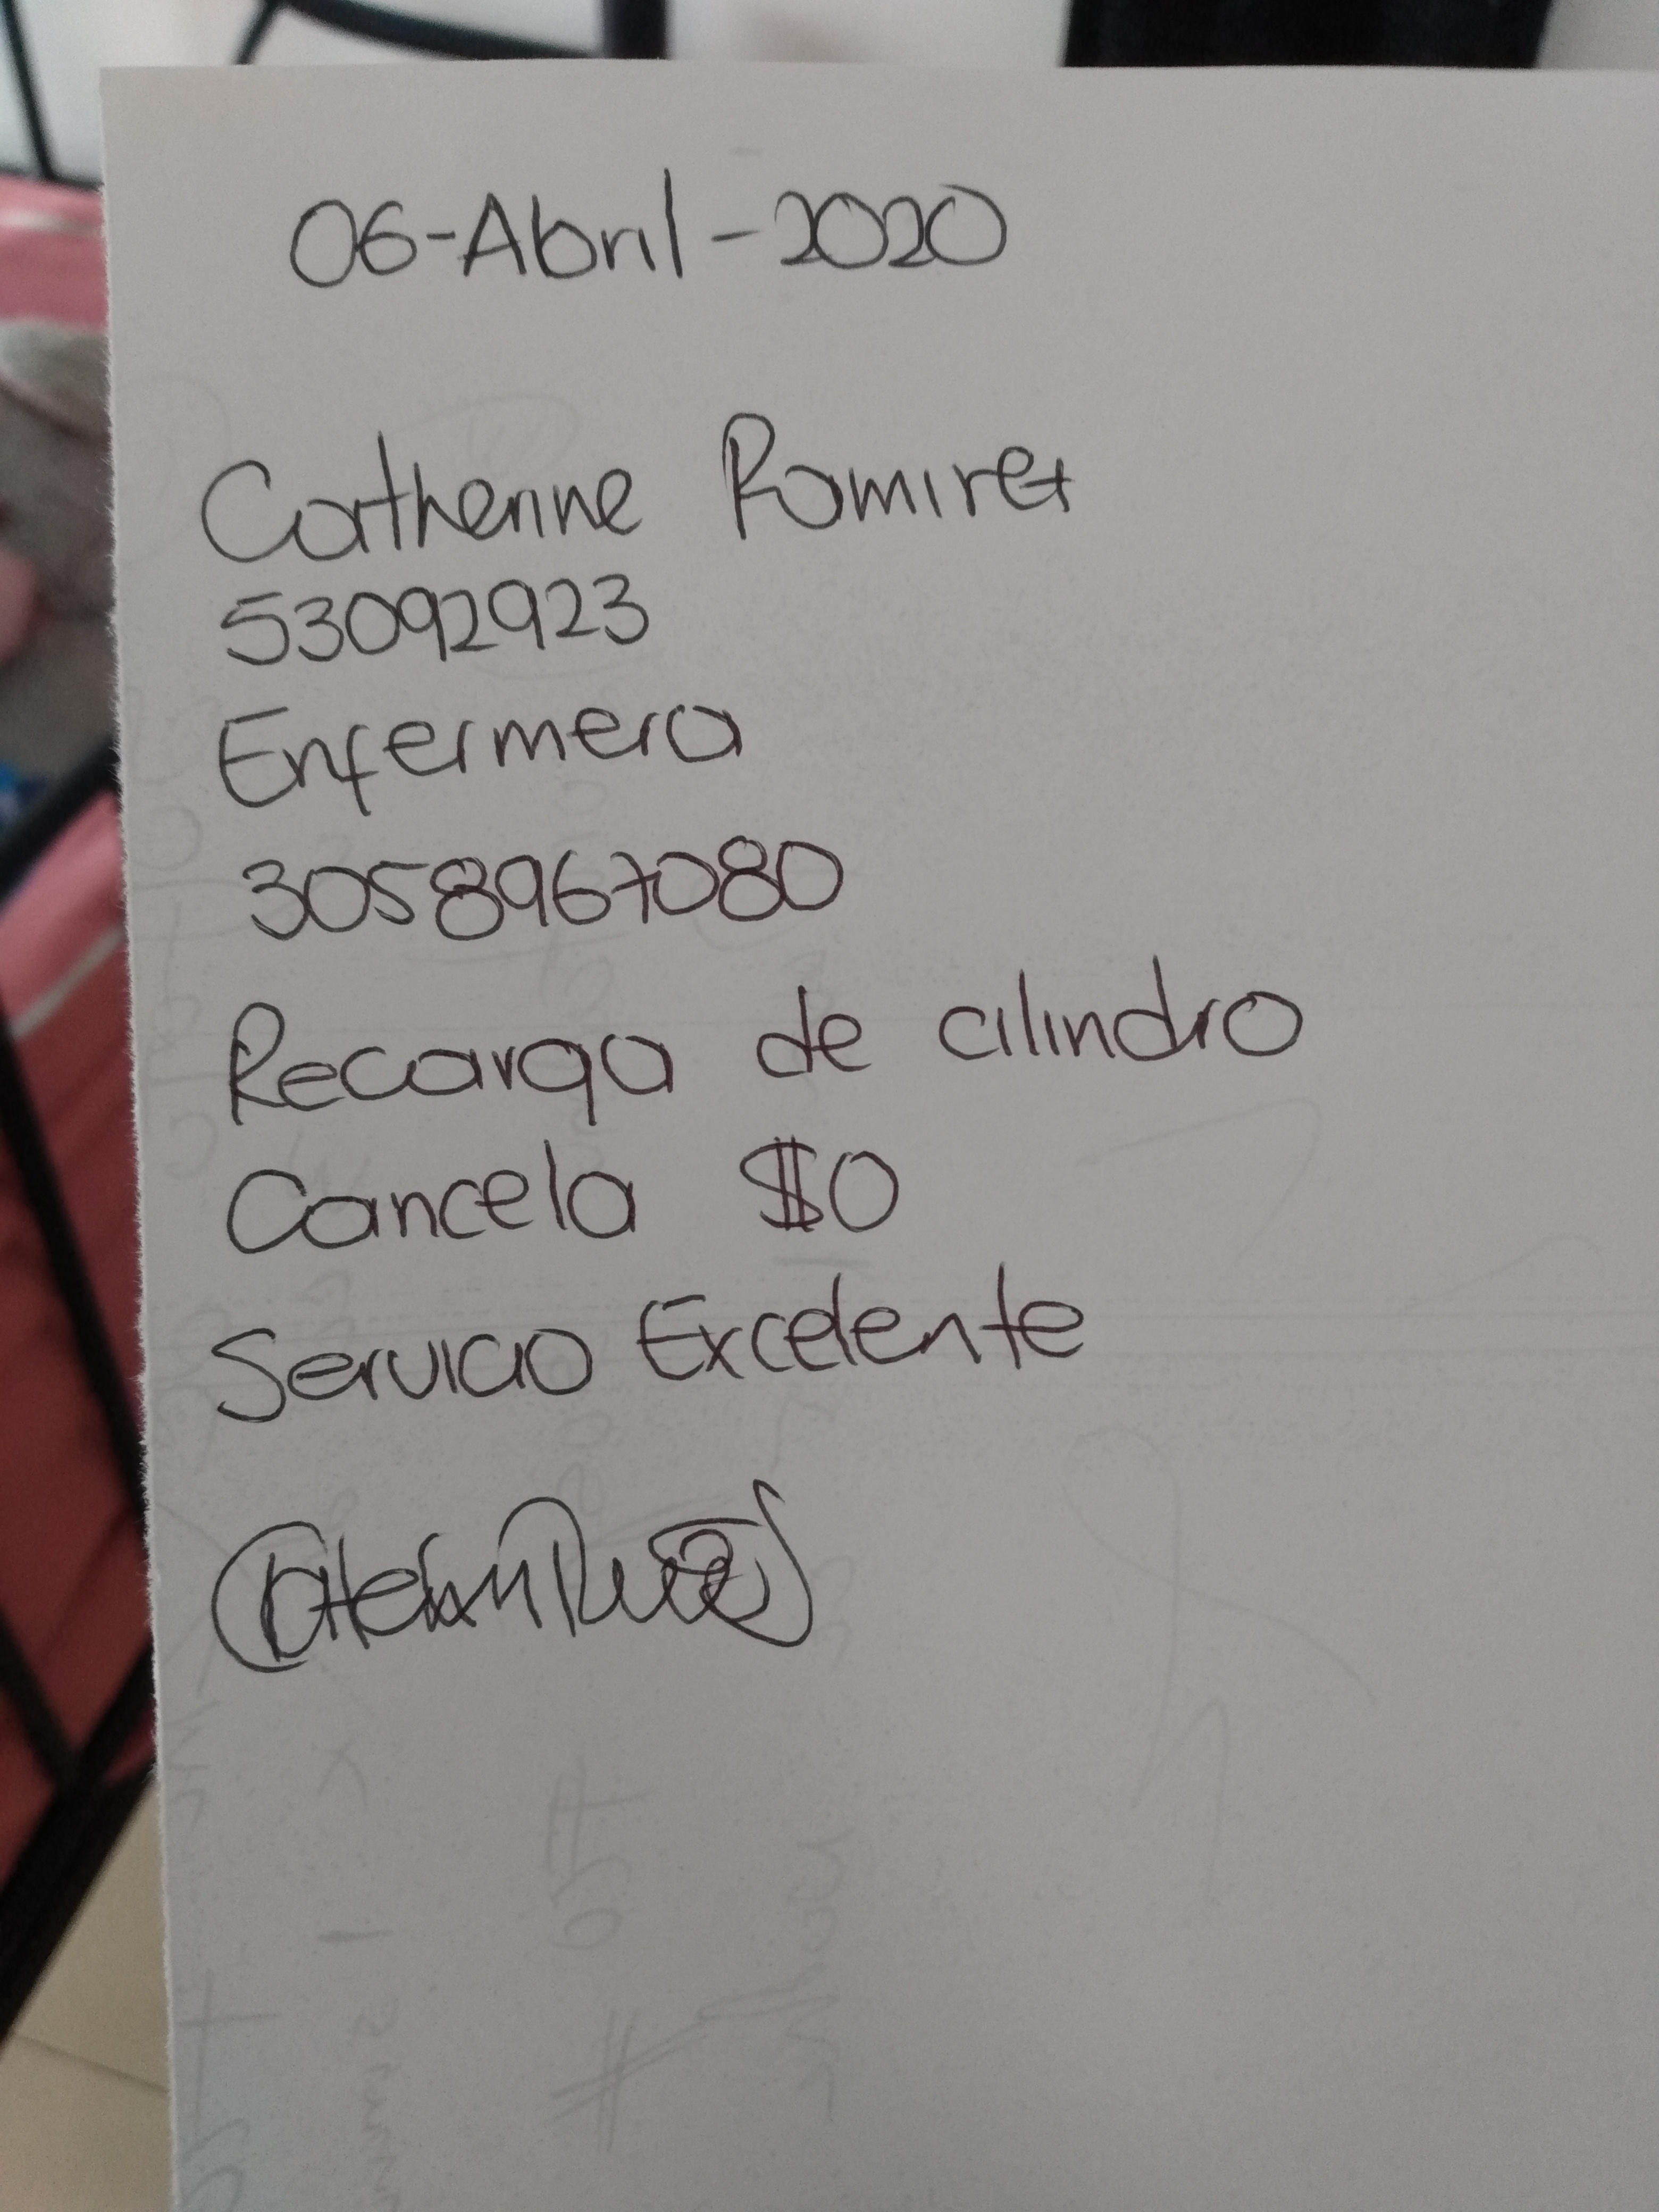 06-Abril-2020
Catherine Ramirez
53092923
Enfermera
3058967080
Recarga de cilindro
Cancela $0
Servicio Excelente